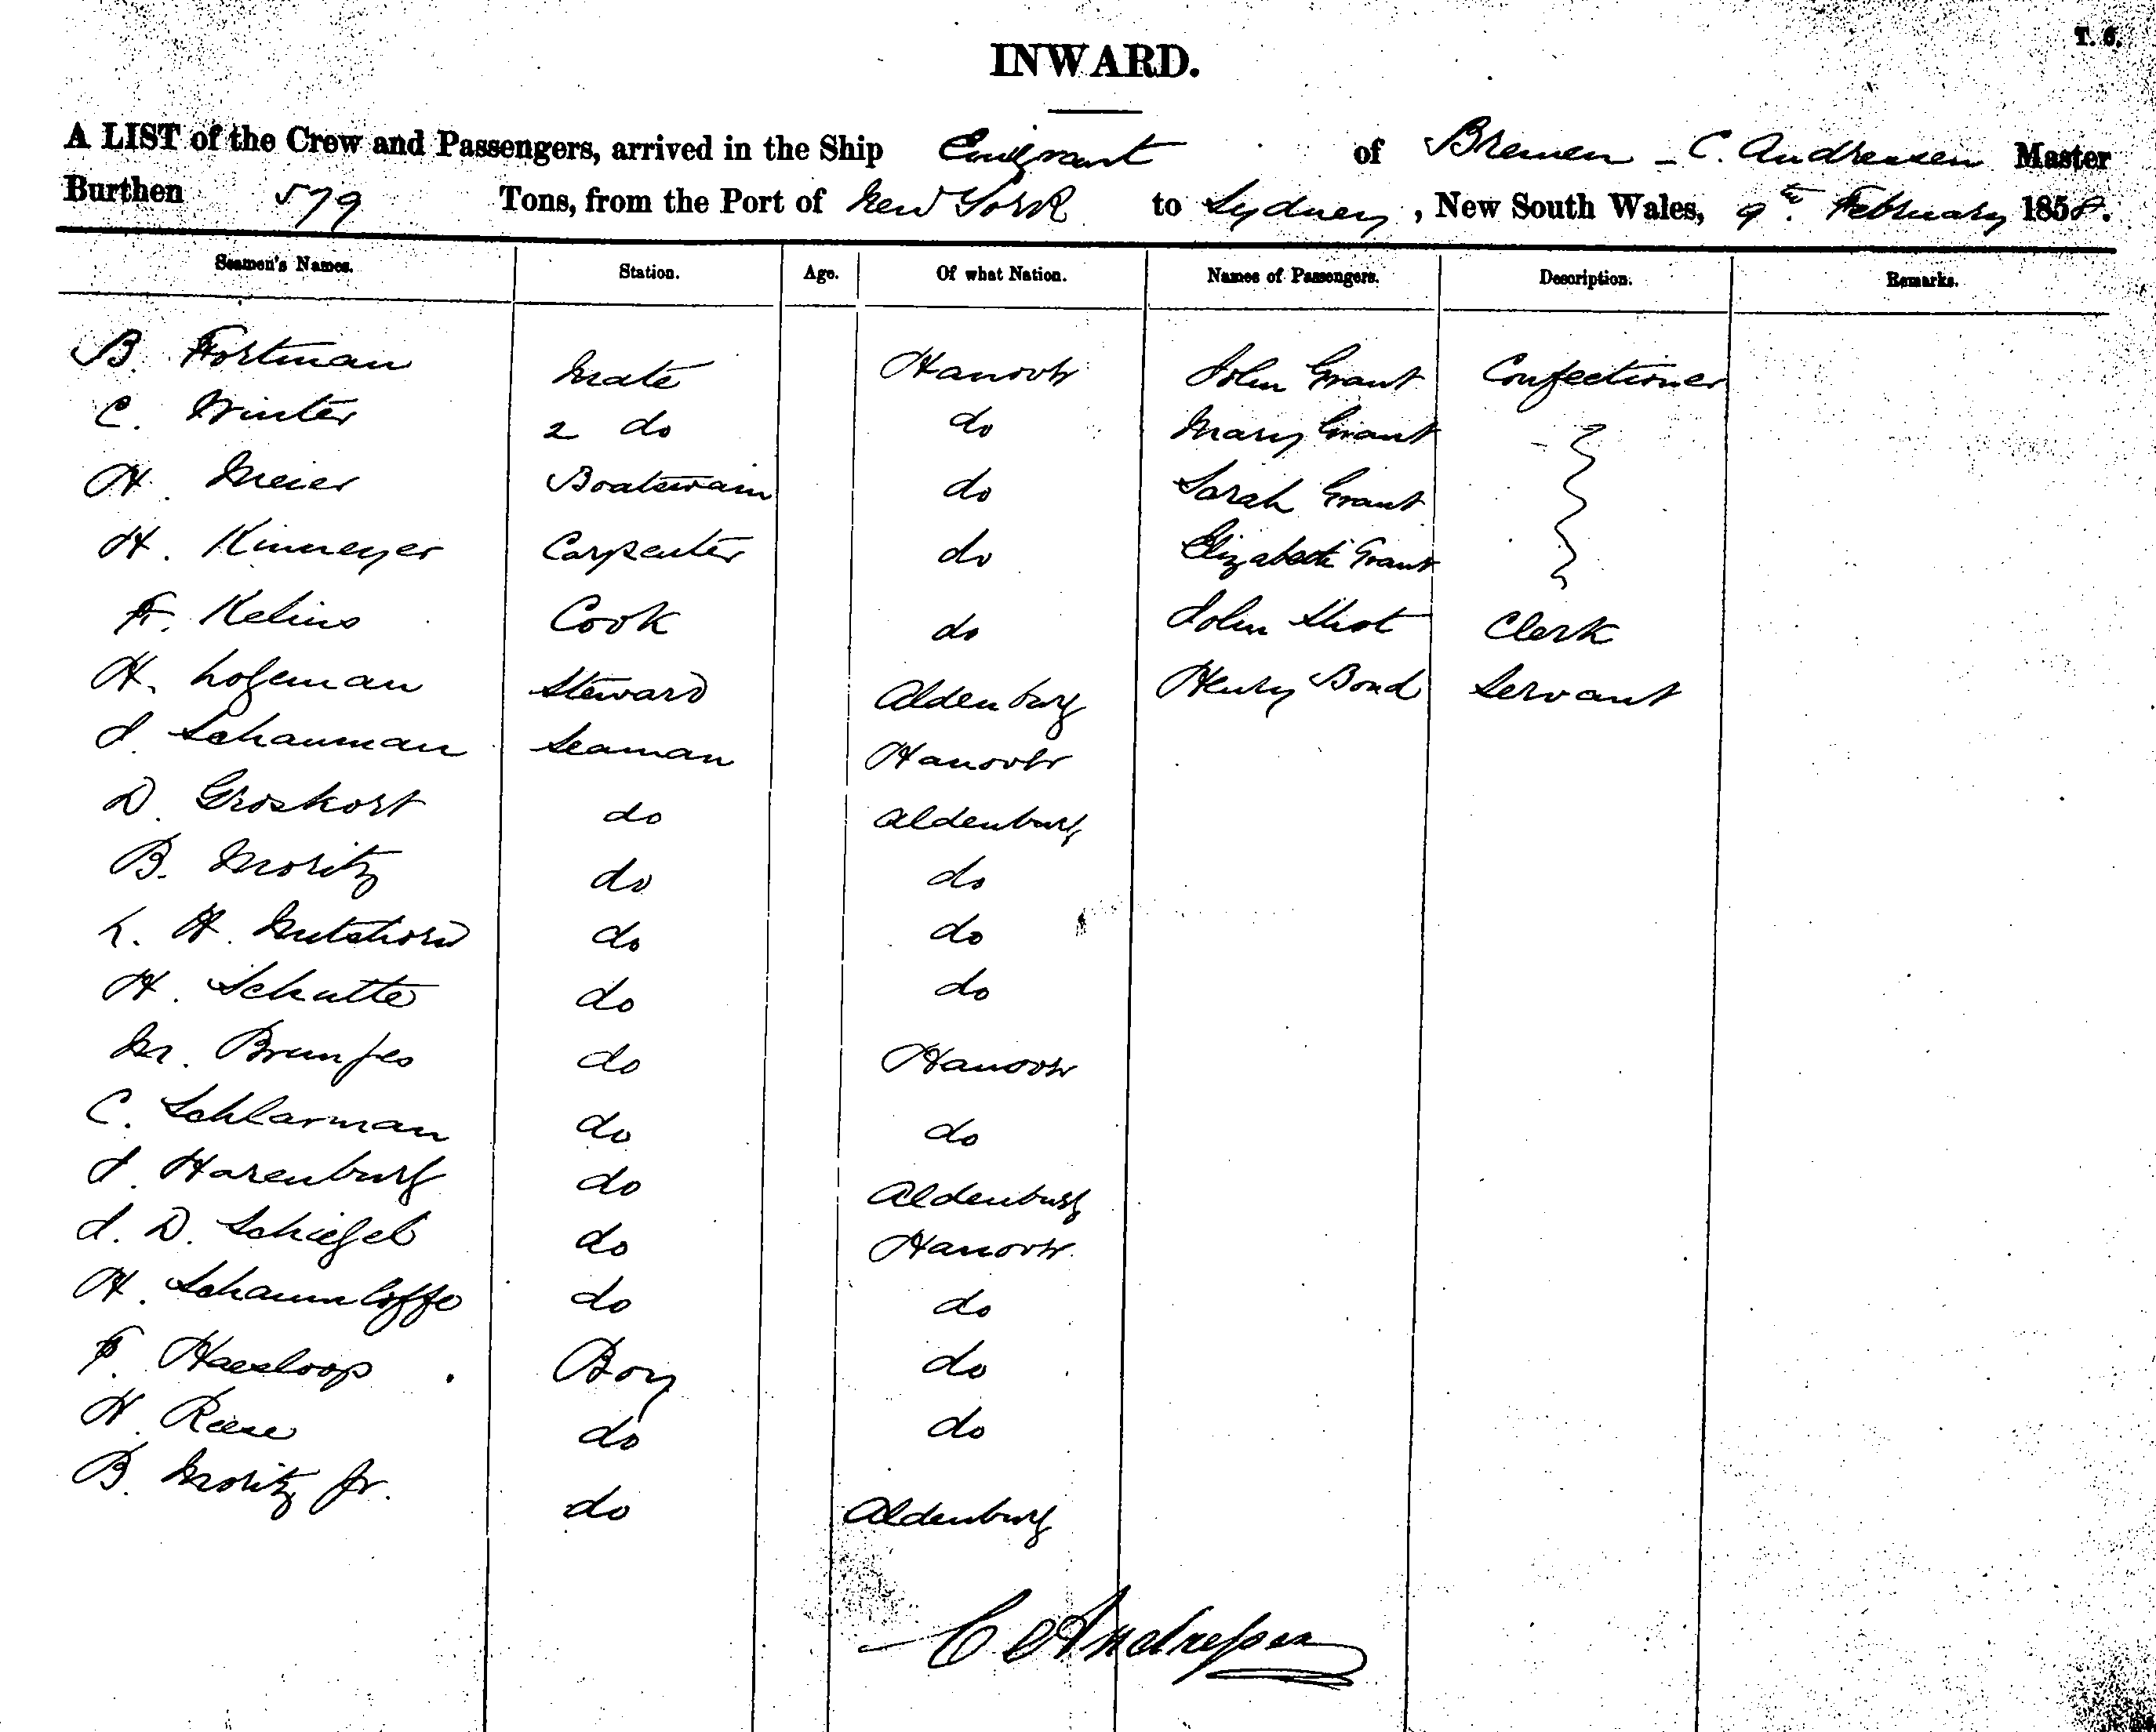 T. 6.
INWARD.
A LIST of the Crew and Passengers, arrived in the Ship Emigrant of Bremen - C. Andressen Master
Burthen 579 Tons, from the Port of New York to Sydney, New South Wales, 9th February 1858.
Seamen's Names. Station. Age. Of what Nation. Names of Passengers. Description. Remarks.
B. Fortman Mate Hanover John Grant Confectioner
C. Winter 2 do do Mary Grant
H. Meier Boatswain do Sarah Grant
H. Kinmeyer Carpenter do Elizabeth Grant
F. Kelins Cook do John Shot Clerk
H. Logeman Steward Aldenburg Henry Bond Servant
J. Schauman Seaman Hanover
D. Groskort do Aldenburg
B. Moritz do do
L. H. Mutshorn do do
H. Schutte do do
M. Brunjes do Hanover
C. Schlarman do do
J. Harenburg do Aldenburg
J. D. Schiegel do Hanover
H. Schaumloffe do do
F. Haesloop Boy do
H. Reese do do
B. Moritz Jr. do Aldenburg
C Andressen